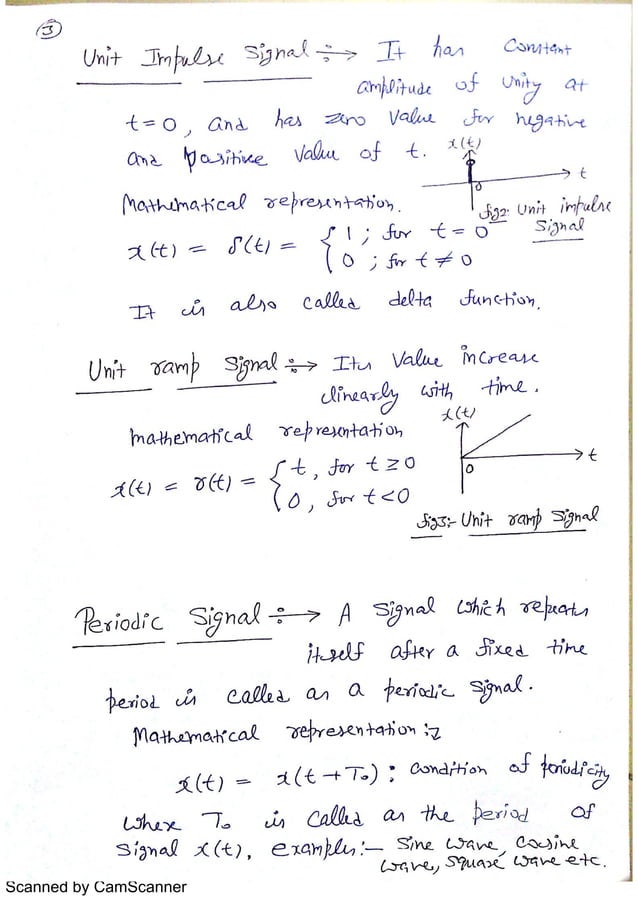 3
Unit Impulse Signal :→ It has Constant
amplitude of unity at
t=0, and has zero value for negative
and positive value of t.
x(t)
t
0
Mathematical representation.
fig2: Unit impulse
Signal
x(t) = δ(t) = { 1 ; for t = 0
0 ; for t ≠ 0
It is also called delta function.
Unit ramp Signal :→ Its Value increase
linearly with time.
x(t)
mathematical representation
t
0
x(t) = r(t) = { t, for t ≥ 0
0, for t < 0
fig3:- Unit ramp Signal
Periodic Signal :→ A Signal which repeats
itself after a fixed time
period is called as a periodic signal.
Mathematical representation :-
x(t) = x(t + T₀) : condition of periodicity
where T₀ is called as the period of
signal x(t), examples:- Sine wave, cosine
wave, square wave etc.
Scanned by CamScanner